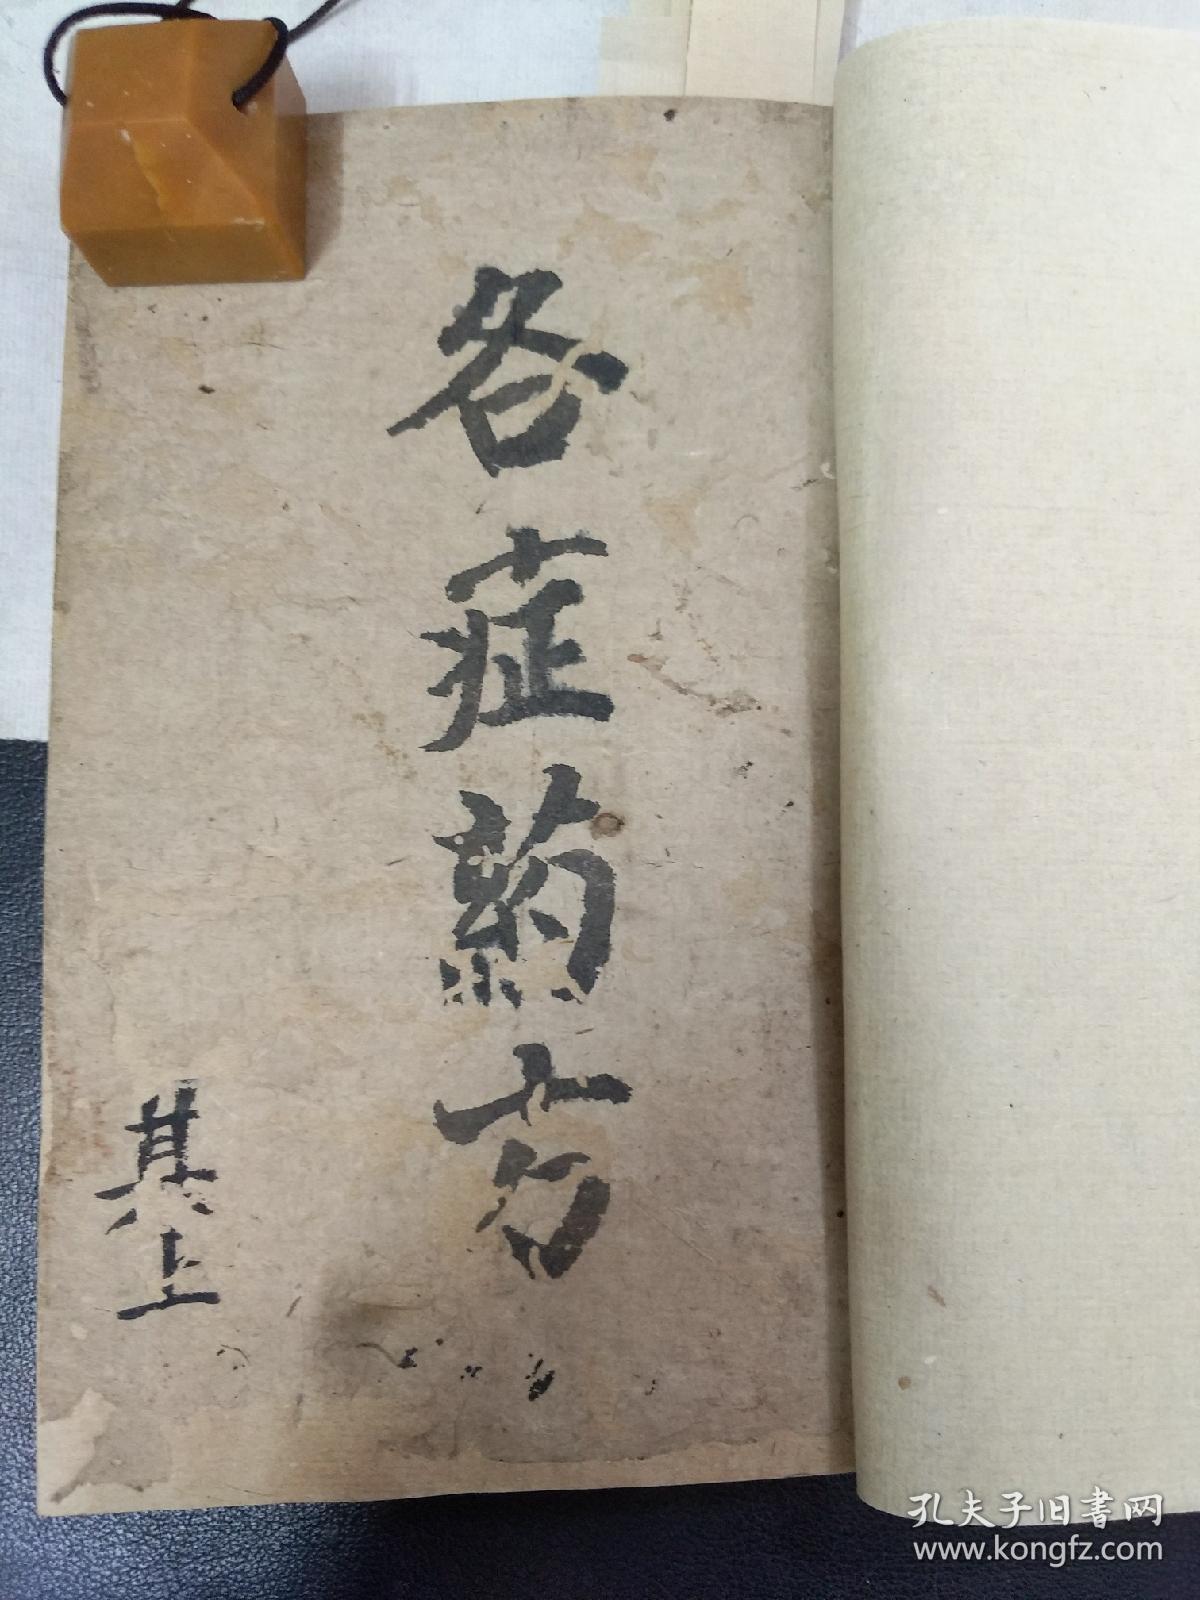 各症药方
其上
孔夫子旧书网
www.kongfz.com